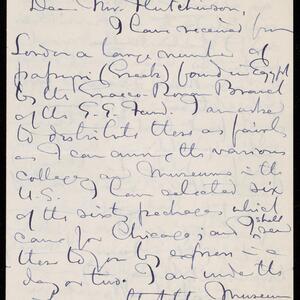 Dear Mr. Hutchinson,
I have received from
London a large number of
papyri (Greek) found in Egypt
by the Graeco-Roman Branch
of the E.E. Fund. I am asked
to distribute these as fairly
as I can among the various
colleges and Museums in the
U.S. I have selected six
of the sixty packages which
came, for Chicago; and I shall send
them to you by express in a
day or two. I am under the
that the Museum